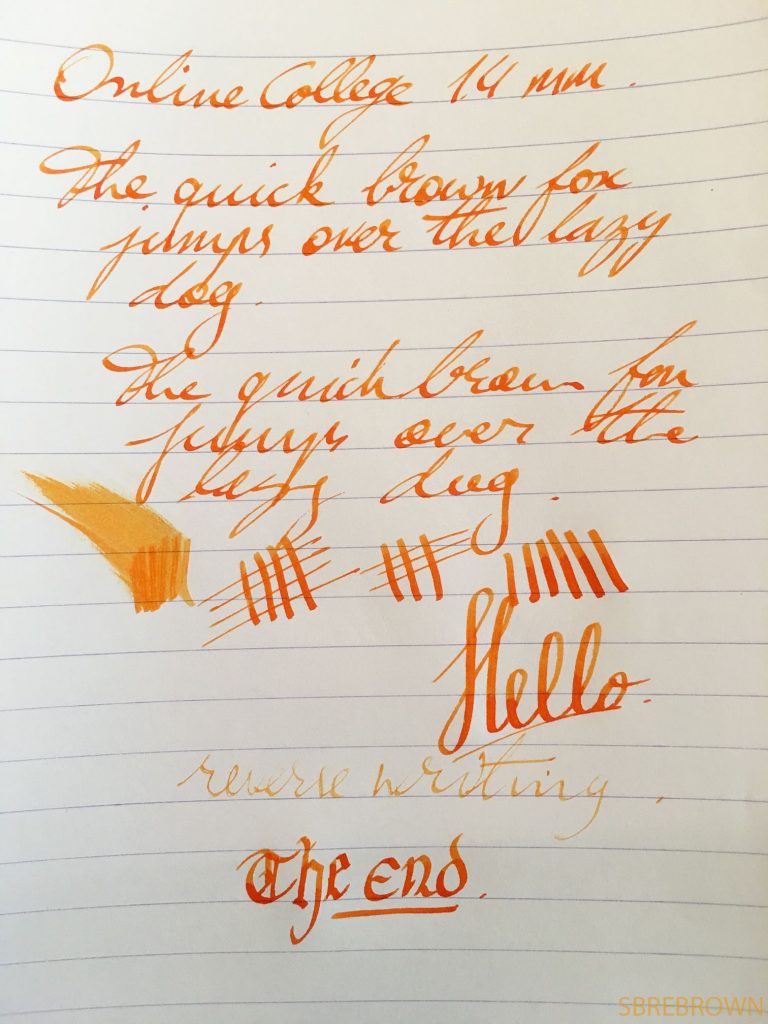 Online College 1.4 mm.
The quick brown fox
jumps over the lazy
dog.
The quick brown fox
jumps over the
lazy dog.
Hello.
reverse writing.
The End.
SBREBROWN